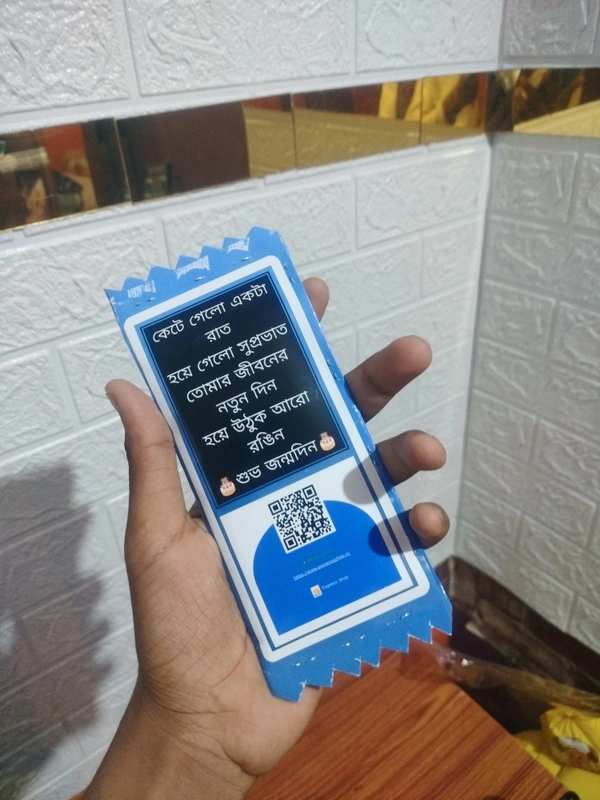 কেটে গেলো একটা
রাত
হয়ে গেলো সুপ্রভাত
তোমার জীবনের
নতুন দিন
হয়ে উঠুক আরো
রঙিন
🎂শুভ জন্মদিন🎂
Express Shop